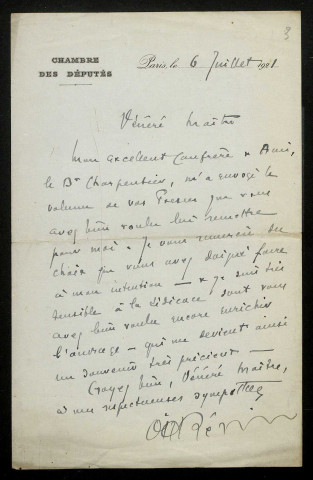 3
CHAMBRE
DES DÉPUTÉS
Paris, le 6 Juillet 1921.
Vénéré Maître
Mon excellent Confrère & Ami,
le Dr Charpentier, m'a envoyé le
volume de vos Poésies que vous
avez bien voulu lui remettre
pour moi. Je vous remercie du
choix que vous avez daigné faire
à mon intention — & je suis très
sensible à la dédicace dont vous
avez bien voulu encore enrichir
l'ouvrage — qui me devient ainsi
un souvenir très précieux —
Croyez bien, Vénéré Maître,
à mes respectueuses sympathies